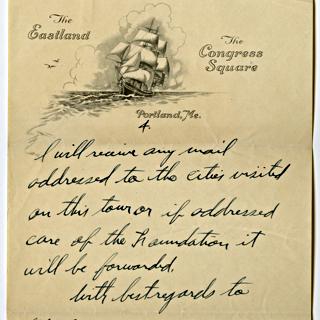 The
Eastland
The
Congress
Square
Portland, Me.
4.
I will receive any mail
addressed to the cities visited
on this tour or if addressed
care of the Foundation it
will be forwarded.
With best regards to